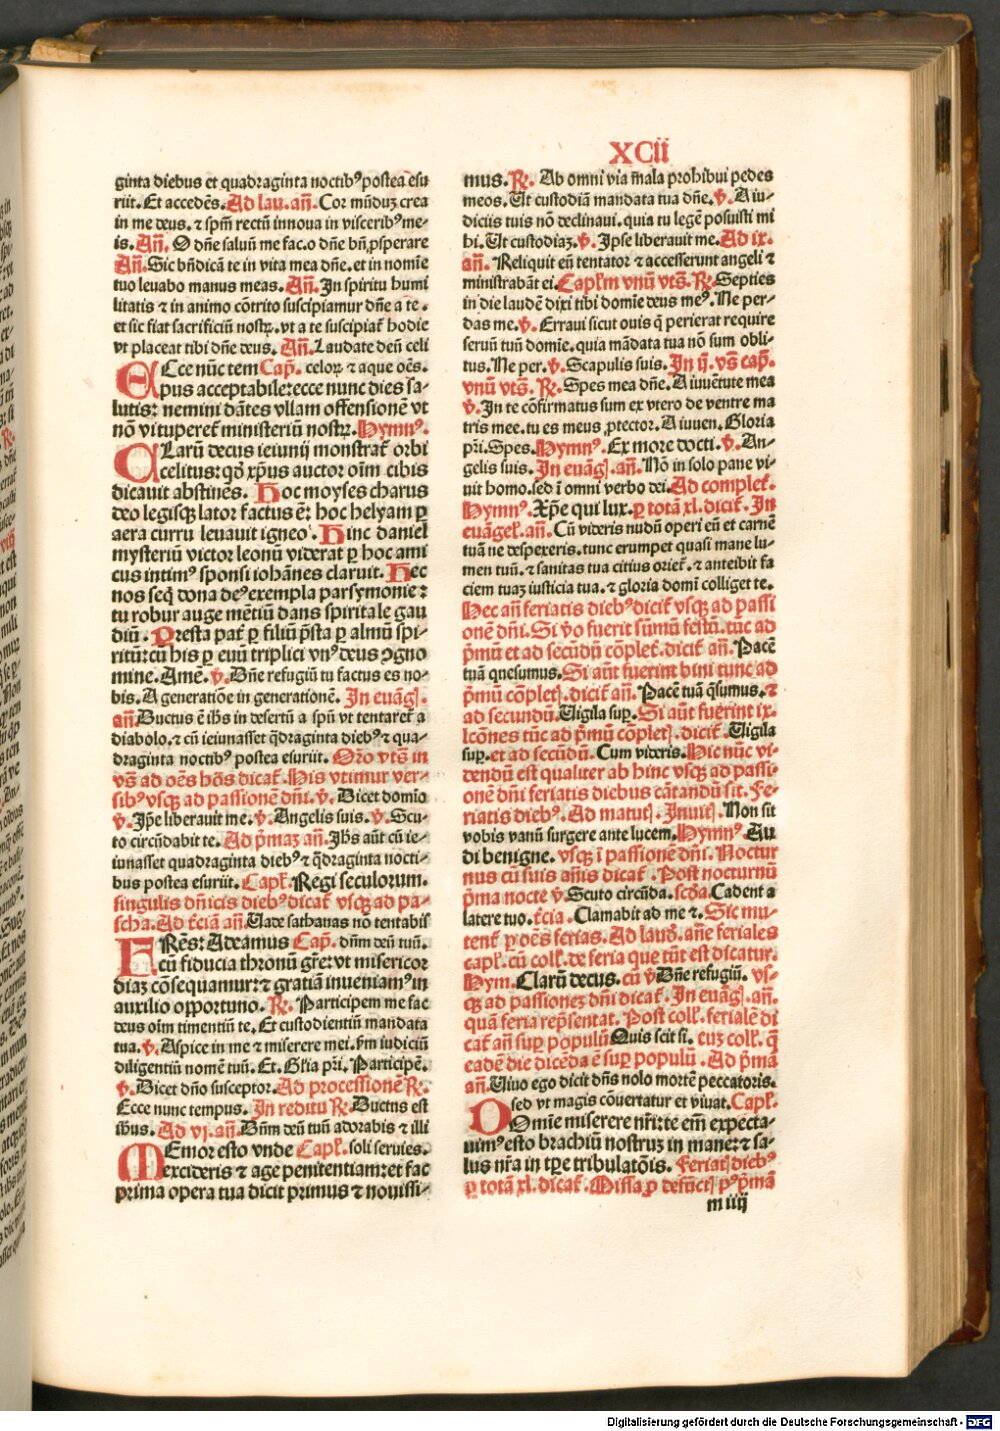 XCii
ginta diebus et quadraginta noctibꝰ postea esu
riit. Et accedēs. Ad lau. añ. Cor mūduȝ crea
in me deus. ⁊ spm̄ rectū innoua in visceribꝰ me-
is. Añ. O dñe saluū me fac. o dñe bñ ꝓsperare
Añ. Sic bñdicā te in vita mea dñe. et in nomīe
tuo leuabo manus meas. Añ. In spiritu humi
litatis ⁊ in animo cōtrito suscipiamur dñe a te.
et sic fiat sacrificiū nostꝝ. vt a te suscipiat᷑ hodie
vt placeat tibi dñe deus. Añ. Laudate deū celi
ECce nūc tem Cap̄. celoꝝ ⁊ aque oēs.
pus acceptabile: ecce nunc dies sa-
lutis: nemini dātes vllam offensionē vt
nō vituperet᷑ ministeriū nostꝝ. Hymnꝰ.
CLarū decus ieiunij monstrat᷑ orbi
celitus: qđ xp̄us auctor oīm cibis
dicauit abstinēs. Hoc moyses charus
deo legisqȝ lator factus ē: hoc helyam ꝑ
aera curru leuauit igneo. Hinc daniel
mysteriū victor leonū viderat ꝑ hoc ami
cus intimꝰ sponsi iohānes claruit. Hec
nos seq̄ dona deꝰ exempla parsymonie:
tu robur auge mētiū dans spiritale gau
diū. Presta pat᷑ ꝑ filiū p̄sta ꝑ almū spi-
ritū: cū his ꝑ euū triplici vnꝰ deus ꝯgno
mine. Amē. ℣. Dñe refugiū tu factus es no-
bis. A generatiōe in generationē. In euāgꝭ.
añ. Ductus ē ihs in desertū a spū vt tentaret᷑ a
diabolo. ⁊ cū ieiunasset q̄draginta diebꝰ ⁊ qua-
draginta noctibꝰ postea esuriit. Oro vts̄ in
vs̄ ad oēs hōs dicat᷑. His vtimur ver-
sibꝰ vsqȝ ad passionē dñi. ℣. Dicet domīo
℣. Ip̄e liberauit me. ℣. Angelis suis. ℣. Scu-
to circūdabit te. Ad p̄maȝ añ. Jhs aūt cū ie-
iunasset quadraginta diebꝰ ⁊ q̄draginta nocti-
bus postea esuriit. Capł. Regi seculorum.
singulis dñicis diebꝰ dicat᷑ vsqȝ ad pa-
scha. Ad t̄ciā añ Uade sathanas nō tentabis
FRēs: Adeamus Cap̄. dñm deū tuū.
cū fiducia thronū gr̄e: vt misericor
diaȝ cōsequamur: ⁊ gratiā inueniamꝰ in
auxilio opportuno. ℟. Participem me fac
deus oīm timentiū te. Et custodientiū mandata
tua. ℣. Aspice in me ⁊ miserere mei. s̄m iudiciū
diligentiū nomē tuū. Et. Gl̄ia p̄ri. Participē.
℣. Dicet dño susceptor. Ad processionē ℟.
Ecce nunc tempus. In reditu ℟. Ductus est
ihus. Ad vj. añ. Dñm deū tuū adorabis ⁊ illi
MEmor esto vnde Capł. soli seruies.
excideris ⁊ age penitentiam: et fac
prima opera tua dicit primus ⁊ nouissi-
mus. ℟. Ab omni via mala prohibui pedes
meos. Ut custodiā mandata tua dñe. ℣. A iu-
diciis tuis nō declinaui. quia tu legē posuisti mi
hi. Ut custodiaȝ. ℣. Ipse liberauit me. Ad ix.
añ. Reliquit eū tentator ⁊ accesserunt angeli ⁊
ministrabāt ei. Capłm vnū vts̄. ℟. Septies
in die laudē dixi tibi domīe deus meꝰ. Ne per-
das me. ℣. Erraui sicut ouis q̄ perierat require
seruū tuū domīe. quia mādata tua nō sum obli-
tus. Ne per. ℣. Scapulis suis. In ij. vs̄ cap̄.
vnū vts̄. ℟. Spes mea dñe. A iuuētute mea
℣. In te cōfirmatus sum ex vtero de ventre ma
tris mee. tu es meus ꝓtector. A iuuen. Gloria
p̄ri. Spes. Hymnꝰ. Ex more docti. ℣. An-
gelis suis. In euāgꝭ. añ. Nō in solo pane vi-
uit homo. sed ī omni verbo dei. Ad complet᷑.
Hymnꝰ. Xp̄e qui lux. ꝑ totā xl. dicit᷑. In
euāgel᷑. añ. Cū videris nudū operi eū et carnē
tuā ne despexeris. tunc erumpet quasi mane lu-
men tuū. ⁊ sanitas tua citius oriet᷑. ⁊ anteibit fa
ciem tuaȝ iusticia tua. ⁊ gloria domī colliget te.
Hec añ feriatis diebꝰ dicit᷑ vsqȝ ad passi
onē dñi. Si v̄o fuerit sūmū festū. tūc ad
p̄mū et ad secūdū cōplet᷑. dicit᷑ añ. Pacē
tuā quesumus. Si aūt fuerint bini tunc ad
p̄mū cōpletꝭ. dicit᷑ añ. Pacē tuā q̄sumus. ⁊
ad secundū. Uigila suꝑ. Si aūt fuerint ix.
lcōnes tūc ad p̄mū cōpletꝭ. dicit᷑. Uigila
suꝑ. et ad secūdū. Cum videris. Hic nūc vi-
dendū est qualiter ab hinc vsqȝ ad passi-
onē dñi feriatis diebus cātandū sit. Fe-
riatis diebꝰ. Ad matutꝭ. Inuitꝭ. Non sit
vobis vanū surgere ante lucem. Hymnꝰ. Au
di benigne. vsqȝ ī passionē dñi. Noctur
nus cū suis añis dicat᷑. Post nocturnū
p̄ma nocte ℣. Scuto circūda. scđa. Cadent a
latere tuo. t̄cia. Clamabit ad me ⁊. Sic mu-
tent᷑ ꝑ oēs ferias. Ad laud̄. añe feriales
capł. cū coll᷑. de feria que tūt est dicatur.
Hym. Clarū decus. cū ℣ Dñe refugiū. vs-
qȝ ad passioneȝ dñi dicat᷑. In euāgꝭ. añ.
quā feria rep̄sentat. Post coll᷑. ferialē di
cat᷑ añ suꝑ populū Quis scit si. cuȝ coll᷑. q̄
eadē die dicēda ē suꝑ populū. Ad p̄mā
añ. Uiuo ego dicit dñs nolo mortē peccatoris.
sed vt magis cōuertatur et viuat. Capł.
DOmīe miserere nr̄i: te em̄ expecta-
uimꝰ esto brachiū nostruȝ in mane: ⁊ sa-
lus nr̄a in tꝑe tribulatōis. Feriatꝭ diebꝰ
ꝑ totā xl. dicat᷑. Missa ꝓ defūctꝭ pꝰ p̄mā
m iiij
Digitalisierung gefördert durch die Deutsche Forschungsgemeinschaft - DFG